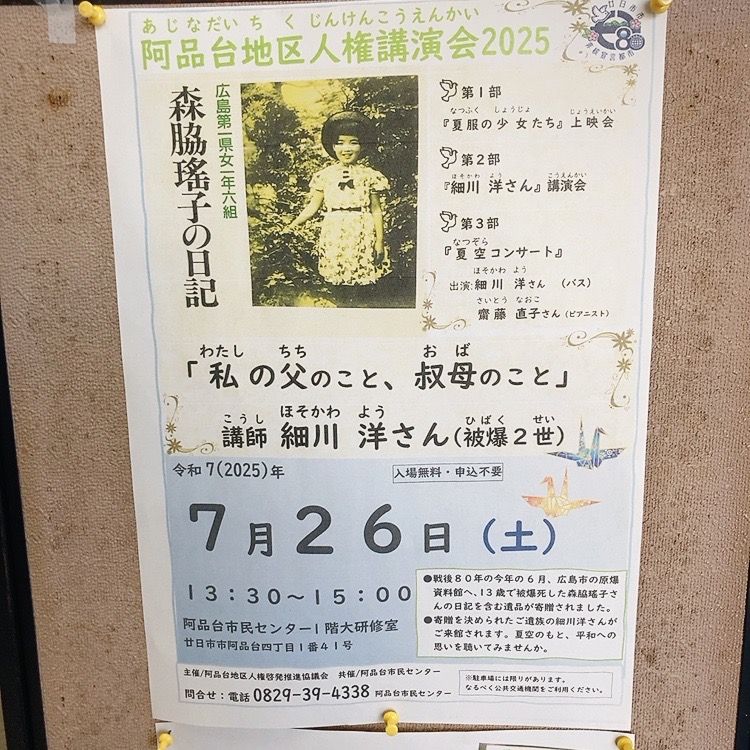 あじなだいちくじんけんこうえんかい
阿品台地区人権講演会2025
広島第一県女一年六組
森脇瑤子の日記
第1部
なつふく しょうじょ じょうえいかい
『夏服の少女たち』上映会
第2部
ほそかわ よう こうえんかい
『細川 洋さん』講演会
第3部
なつぞら
『夏空コンサート』
ほそかわ よう
出演:細川 洋さん (バス)
さいとう なおこ
齋藤 直子さん(ピアニスト)
わたし ちち おば
「私の父のこと、叔母のこと」
こうし ほそかわ よう ひばく せい
講師 細川 洋さん(被爆2世)
令和7(2025)年
入場無料・申込不要
7月26日(土)
13:30~15:00
阿品台市民センター1階大研修室
廿日市市阿品台四丁目1番41号
●戦後80年の今年の6月、広島市の原爆
資料館へ、13歳で被爆死した森脇瑤子さ
んの日記を含む遺品が寄贈されました。
●寄贈を決められたご遺族の細川洋さんが
ご来館されます。夏空のもと、平和への
思いを聴いてみませんか。
主催/阿品台地区人権啓発推進協議会 共催/阿品台市民センター
問合せ:電話 0829-39-4338 阿品台市民センター
※駐車場には限りがあります。
なるべく公共交通機関をご利用ください。